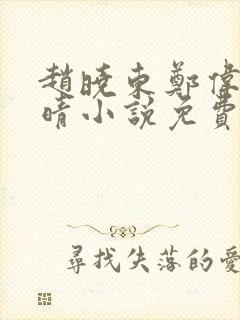 趙曉東鄭偉
晴小說免費
尋找失落的愛